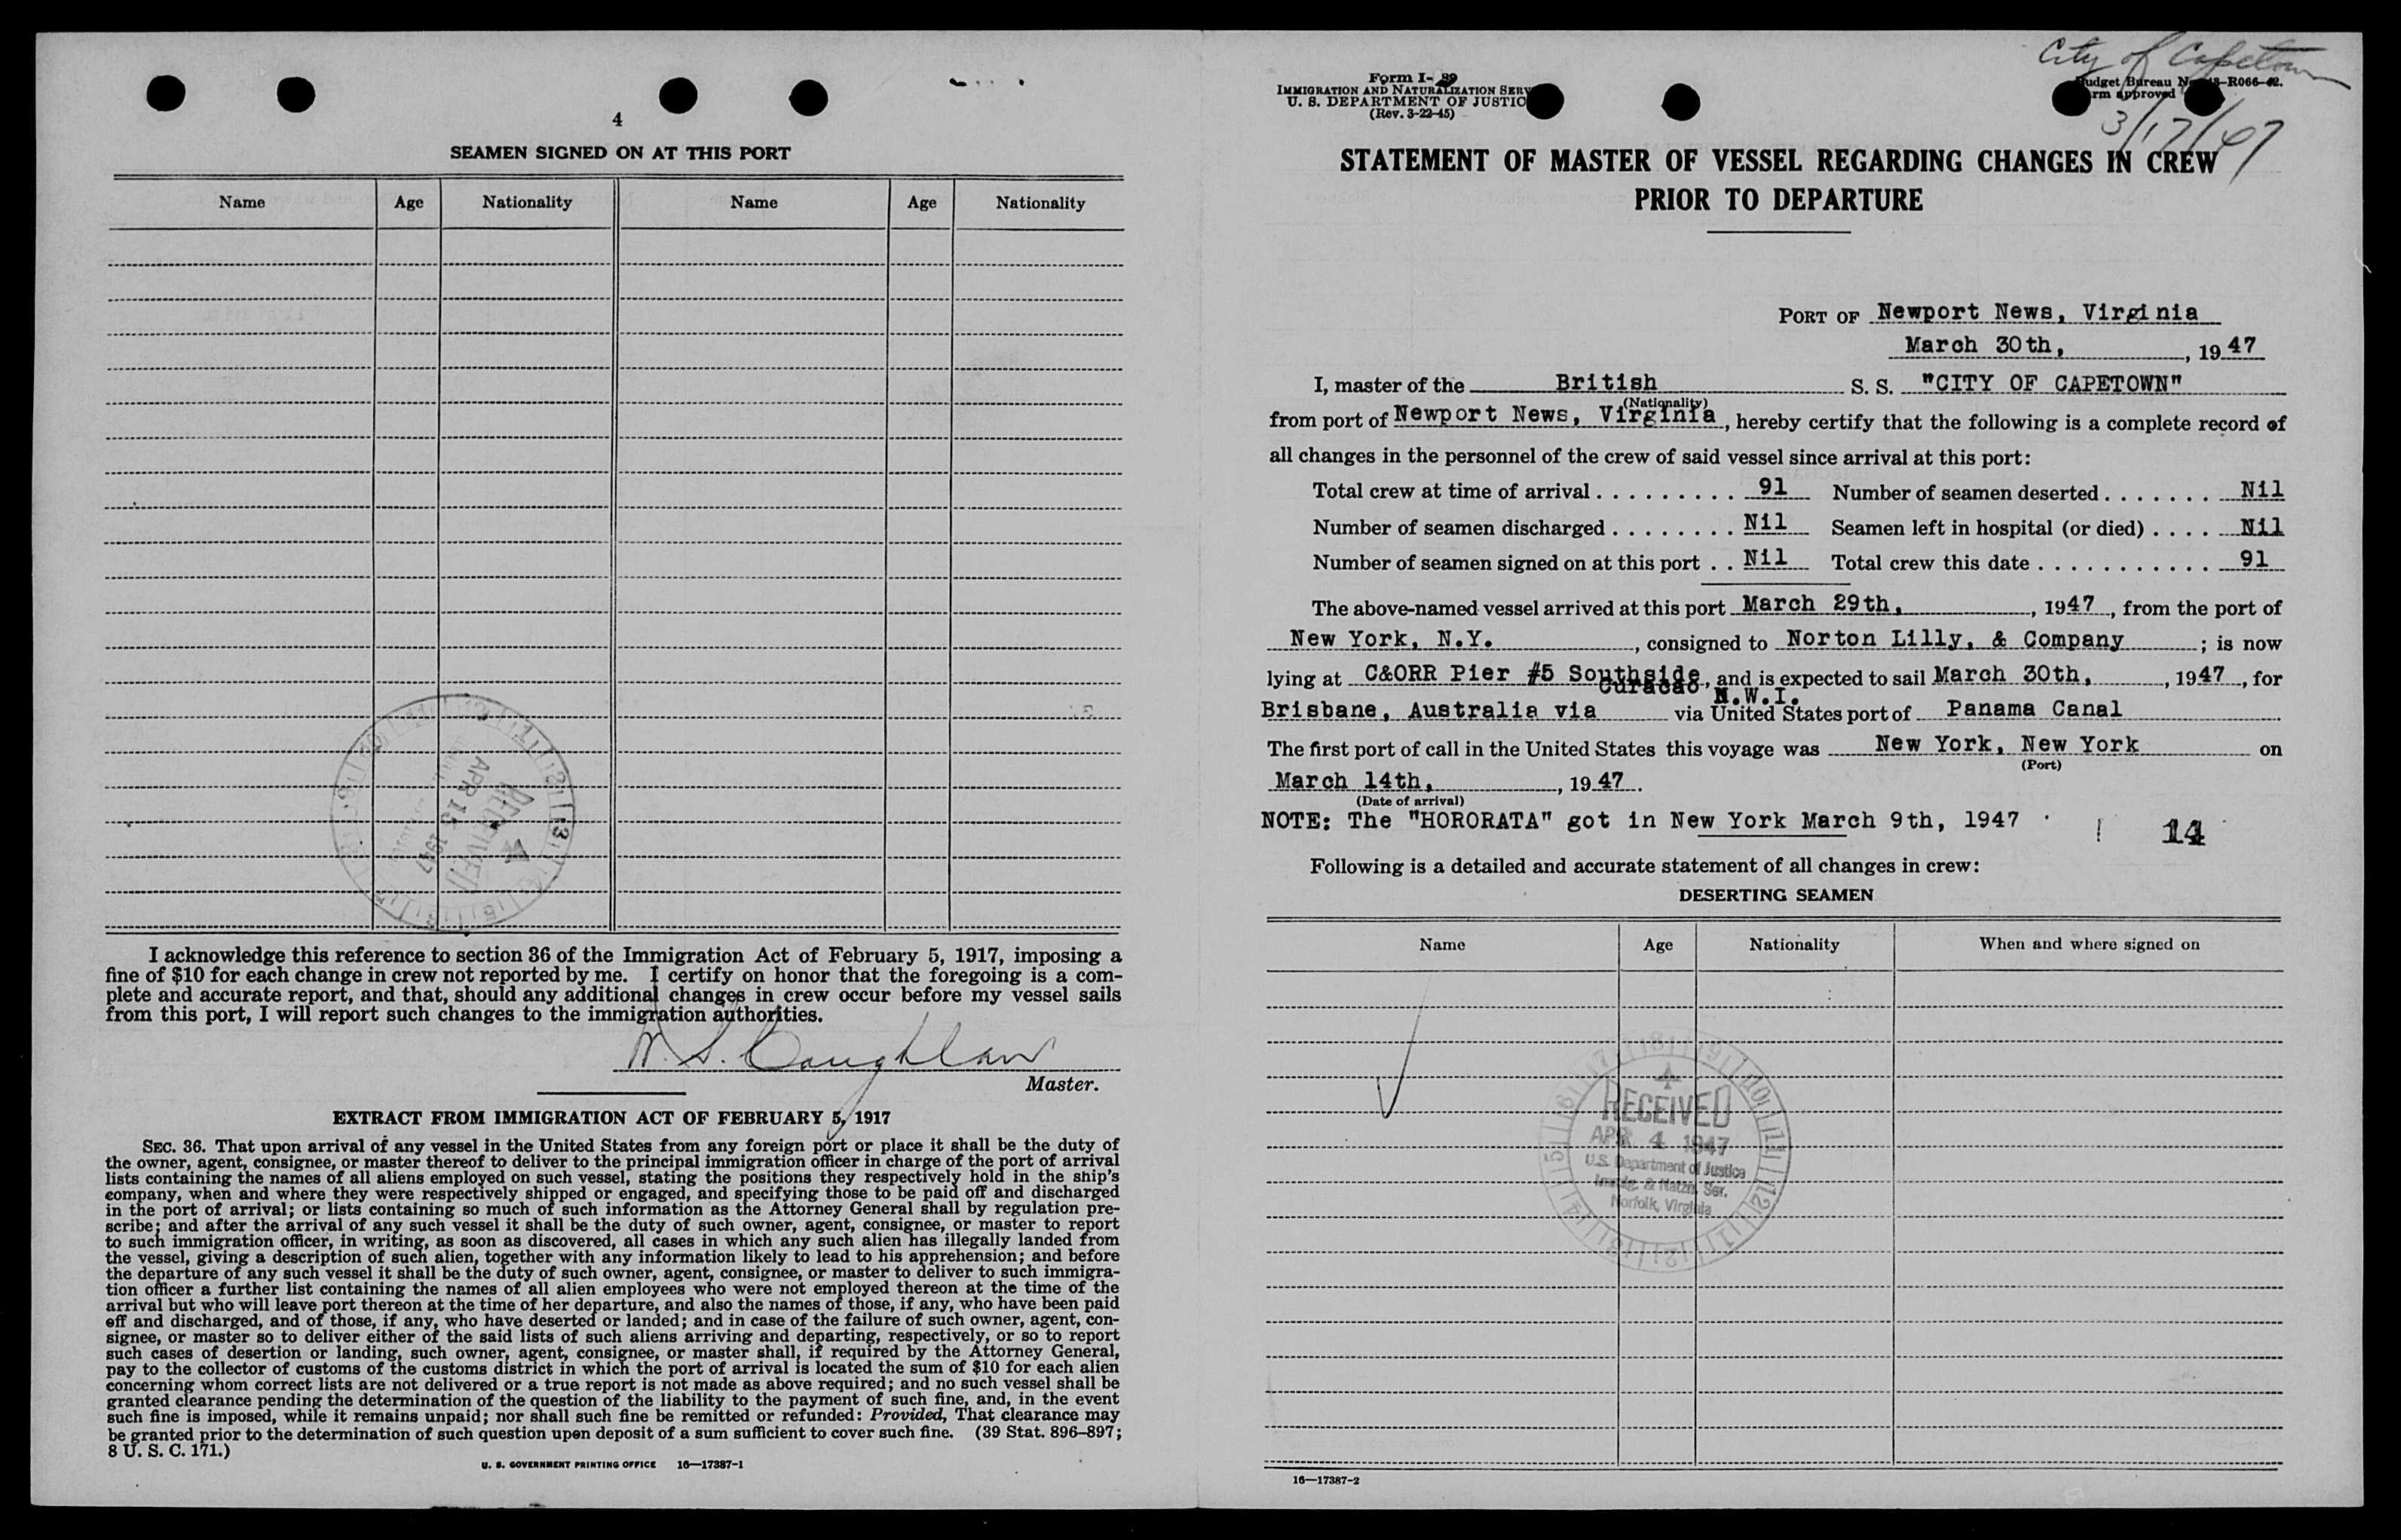 4
SEAMEN SIGNED ON AT THIS PORT
Name Age Nationality Name Age Nationality
APR 15 1947
RECEIVED
I acknowledge this reference to section 36 of the Immigration Act of February 5, 1917, imposing a
fine of $10 for each change in crew not reported by me. I certify on honor that the foregoing is a com-
plete and accurate report, and that, should any additional changes in crew occur before my vessel sails
from this port, I will report such changes to the immigration authorities.
W. S. Coughlan
Master.
EXTRACT FROM IMMIGRATION ACT OF FEBRUARY 5, 1917
SEC. 36. That upon arrival of any vessel in the United States from any foreign port or place it shall be the duty of
the owner, agent, consignee, or master thereof to deliver to the principal immigration officer in charge of the port of arrival
lists containing the names of all aliens employed on such vessel, stating the positions they respectively hold in the ship's
company, when and where they were respectively shipped or engaged, and specifying those to be paid off and discharged
in the port of arrival; or lists containing so much of such information as the Attorney General shall by regulation pre-
scribe; and after the arrival of any such vessel it shall be the duty of such owner, agent, consignee, or master to report
to such immigration officer, in writing, as soon as discovered, all cases in which any such alien has illegally landed from
the vessel, giving a description of such alien, together with any information likely to lead to his apprehension; and before
the departure of any such vessel it shall be the duty of such owner, agent, consignee, or master to deliver to such immigra-
tion officer a further list containing the names of all alien employees who were not employed thereon at the time of the
arrival but who will leave port thereon at the time of her departure, and also the names of those, if any, who have been paid
off and discharged, and of those, if any, who have deserted or landed; and in case of the failure of such owner, agent, con-
signee, or master so to deliver either of the said lists of such aliens arriving and departing, respectively, or so to report
such cases of desertion or landing, such owner, agent, consignee, or master shall, if required by the Attorney General,
pay to the collector of customs of the customs district in which the port of arrival is located the sum of $10 for each alien
concerning whom correct lists are not delivered or a true report is not made as above required; and no such vessel shall be
granted clearance pending the determination of the question of the liability to the payment of such fine, and, in the event
such fine is imposed, while it remains unpaid; nor shall such fine be remitted or refunded: Provided, That clearance may
be granted prior to the determination of such question upon deposit of a sum sufficient to cover such fine. (39 Stat. 896–897;
8 U. S. C. 171.)
U. S. GOVERNMENT PRINTING OFFICE 16—17387-1
City of Capetown
3/17/47
Form I-
IMMIGRATION AND NATURALIZATION SERV
U. S. DEPARTMENT OF JUSTIC
(Rev. 3-22-45)
udget Bureau N -R066-42.
rm approved
STATEMENT OF MASTER OF VESSEL REGARDING CHANGES IN CREW
PRIOR TO DEPARTURE
PORT OF Newport News, Virginia
March 30th, , 19 47
I, master of the British S. S. "CITY OF CAPETOWN"
(Nationality)
from port of Newport News, Virginia, hereby certify that the following is a complete record of
all changes in the personnel of the crew of said vessel since arrival at this port:
Total crew at time of arrival . . . . . . . . . 91 Number of seamen deserted . . . . . . . Nil
Number of seamen discharged . . . . . . . . Nil Seamen left in hospital (or died) . . . . Nil
Number of seamen signed on at this port . . Nil Total crew this date . . . . . . . . . . . . 91
The above-named vessel arrived at this port March 29th, , 1947, from the port of
New York, N.Y. , consigned to Norton Lilly, & Company ; is now
lying at C&ORR Pier #5 Southside, and is expected to sail March 30th, , 1947, for
Curacao N.W.I.
Brisbane, Australia via via United States port of Panama Canal
The first port of call in the United States this voyage was New York, New York on
(Port)
March 14th, , 19 47.
(Date of arrival)
NOTE: The "HORORATA" got in New York March 9th, 1947
14
Following is a detailed and accurate statement of all changes in crew:
DESERTING SEAMEN
Name Age Nationality When and where signed on
RECEIVED
APR 4 1947
U.S. Department of Justice
Immig. & Natzn. Ser.
Norfolk, Virginia
16—17387-2